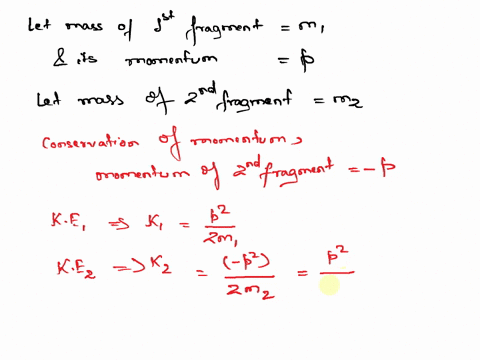 Let mass of 1st fragment = m₁
& its momentum = p
Let mass of 2nd fragment = m₂
Conservation of momentum,
momentum of 2nd fragment = -p
K.E₁ => K₁ = p²/2m₁
K.E₂ => K₂ = (-p²)/2m₂ = p²/